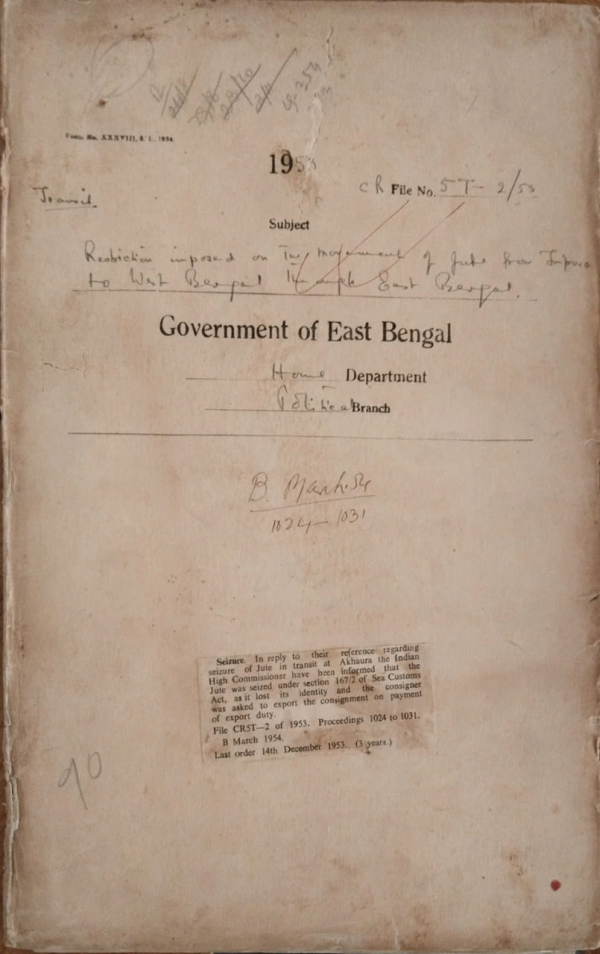 Form No. XXXVIII, S. I., 1934.
1953
Transit.
CR File No. 5T-2/53
Subject
Restriction imposed on the movement of Jute from Tripura
to West Bengal through East Bengal.
Government of East Bengal
Home Department
Political Branch
B. March. 54
1024-1031
Seizure. In reply to their reference regarding
seizure of Jute in transit at Akhaura the Indian
High Commissioner have been informed that the
Jute was seized under section 167/2 of Sea Customs
Act, as it lost its identity and the consigner
was asked to export the consignment on payment
of export duty.
File CR5T—2 of 1953. Proceedings 1024 to 1031.
B March 1954.
Last order 14th December 1953. (3 years.)
90